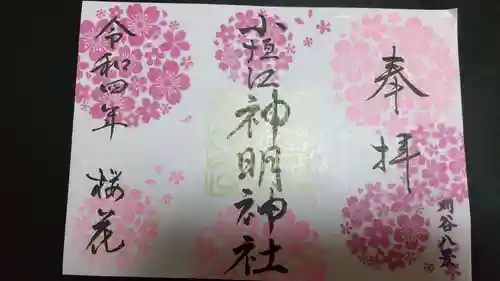 奉拝
刈谷八景
小垣江神明神社
令和四年
桜花